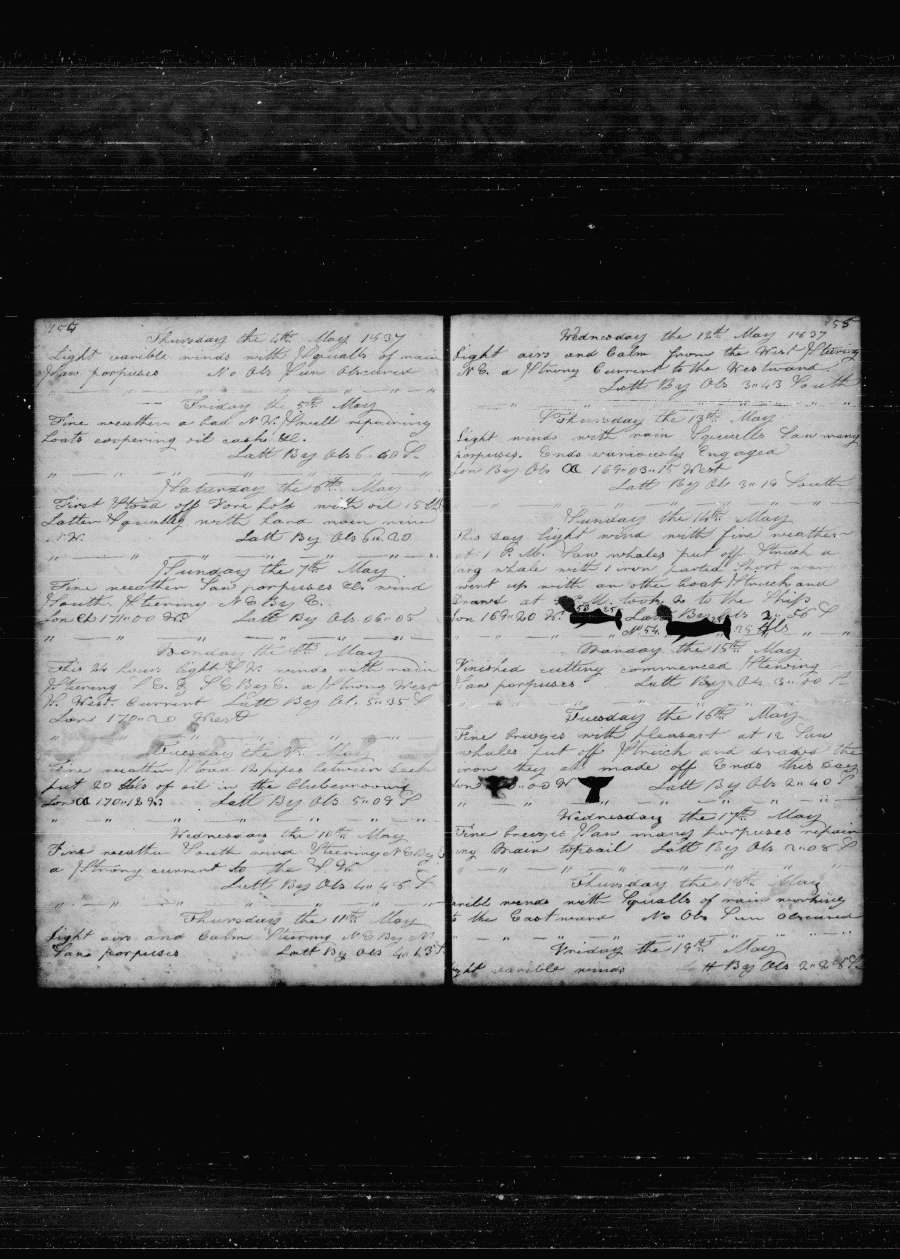 154
Thursday the 4th May 1837
Light varible winds with Squalls of rain
Saw porpuses No Obs Sun Obscured
Friday the 5th May
Fine weather a bad N.W. Swell repairing
boats coopering oil casks &c.
Latt By Obs 6 " 40 S.
Saturday the 6th May
First Stowd off Fore hold with oil 15
Latter Squally with hard rain wind
N.W. Latt By Obs 6 " 20
Sunday the 7th May
Fine weather Saw porpuses &c. wind
South. Steering N E By E.
Lon 171 " 00 W. Latt By Obs 06 " 05
Monday the 8th May
This 24 hours light S.W. winds with rain
Steering S E. & S E By E. a Strong West
N. West. Current Latt By Ob. 5 " 35 S
Lon 170 " 20 West
Tuesday the 9th May
Fine weather Stowd 12 pipes between deck
put 20 bbls of oil in the blubberroom
Lon 170 " 12 W. Latt By Obs 5 " 09 S
Wednesday the 10th May
Fine weather South wind Steering N E By
a Strong current to the S W
Latt By Obs 4 " 46 S
Thursday the 11th May
Light airs and Calm Steering N E By N.
Saw porpuses Latt By Obs 4 " 13 S
155
Wednesday the 12th May 1837
Light airs and Calm from the West Steering
N E. a Strong Current to the Westward
Latt By Obs 3 " 43 South
Thursday the 13th May
Light winds with rain Squalls Saw many
porpuses. Ends variously Engaged
Lon By Obs 169 " 03 " 15 West
Latt By Obs 3 " 19 South
Sunday the 14th May
This day light wind with fine weather
at 1 P.M. Saw whales put off Struck a
whale with 1 iron parted Short
went up with an other boat Struck and
Drawd at P.M. took to the Ship
Lon 169 " 20 W. Latt By Obs 2 " 56 S
No 54.
Monday the 15th May
Finished cutting commenced Stewing
Saw porpuses Latt By Obs 3 " 00 S
Tuesday the 16th May
Fine breezes with pleasant at 12 Saw
whales put off Struck and drawd the
iron they all made off Ends this day
Lon W Latt By Obs 2 " 40 S
Wednesday the 17th May
Fine breezes Saw many porpuses repair
ing Main topsail Latt By Obs 2 " 08 S
Thursday the 18th May
varible winds with Squalls of rain working
to the Eastward No Obs Sun obscured
Friday the 19th May
light varible winds Latt By Obs 2 " 28 S